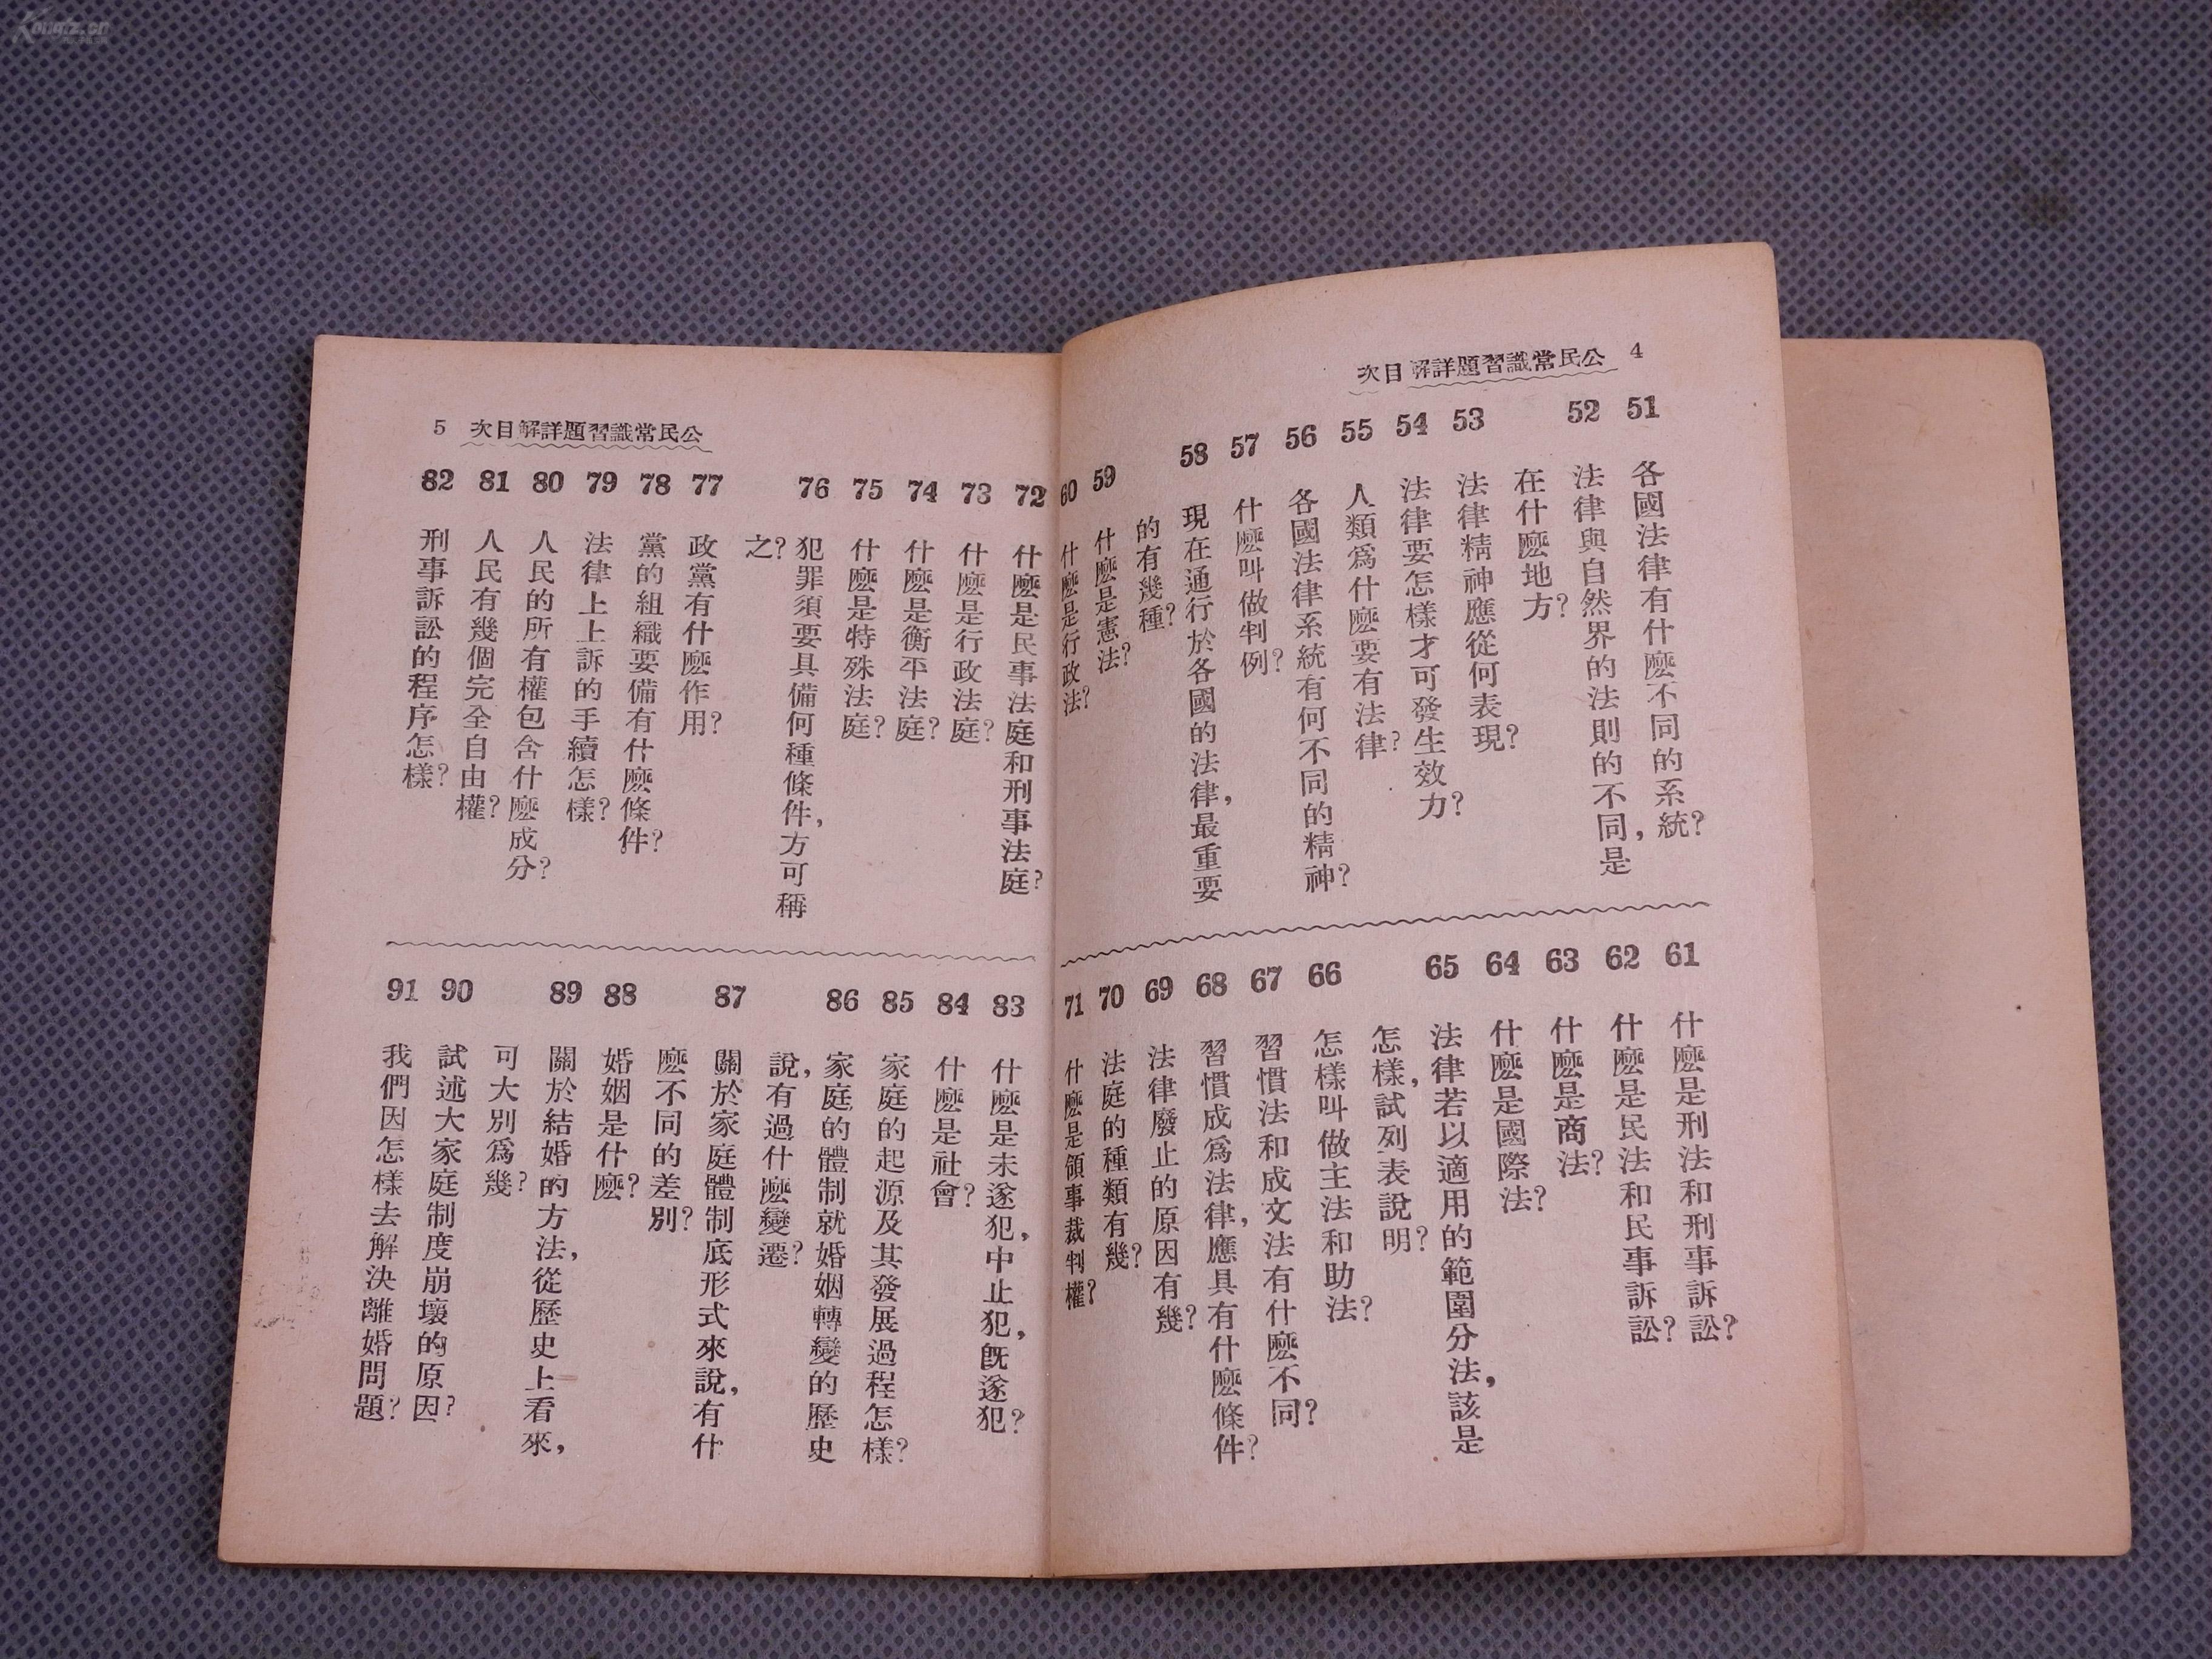 Kongfz.cn
4 公民常識習題詳解目次
51 各國法律有什麽不同的系統?
52 法律與自然界的法則的不同,是
在什麽地方?
53 法律精神應從何表現?
54 法律要怎樣才可發生效力?
55 人類爲什麽要有法律?
56 各國法律系統有何不同的精神?
57 什麽叫做判例?
58 現在通行於各國的法律,最重要
的有幾種?
59 什麽是憲法?
60 什麽是行政法?
61 什麽是刑法和刑事訴訟?
62 什麽是民法和民事訴訟?
63 什麽是商法?
64 什麽是國際法?
65 法律若以適用的範圍分法,該是
怎樣,試列表說明?
66 怎樣叫做主法和助法?
67 習慣法和成文法有什麽不同?
68 習慣成爲法律,應具有什麽條件?
69 法律廢止的原因有幾?
70 法庭的種類有幾?
71 什麽是領事裁判權?
公民常識習題詳解目次 5
72 什麽是民事法庭和刑事法庭?
73 什麽是行政法庭?
74 什麽是衡平法庭?
75 什麽是特殊法庭?
76 犯罪須要具備何種條件,方可稱
之?
77 政黨有什麽作用?
78 黨的組織要備有什麽條件?
79 法律上上訴的手續怎樣?
80 人民的所有權包含什麽成分?
81 人民有幾個完全自由權?
82 刑事訴訟的程序怎樣?
83 什麽是未遂犯,中止犯,旣遂犯?
84 什麽是社會?
85 家庭的起源及其發展過程怎樣?
86 家庭的體制就婚姻轉變的歷史
說,有過什麽變遷?
87 關於家庭體制底形式來說,有什
麽不同的差別?
88 婚姻是什麽?
89 關於結婚的方法,從歷史上看來,
可大別爲幾?
90 試述大家庭制度崩壞的原因?
91 我們因怎樣去解決離婚問題?